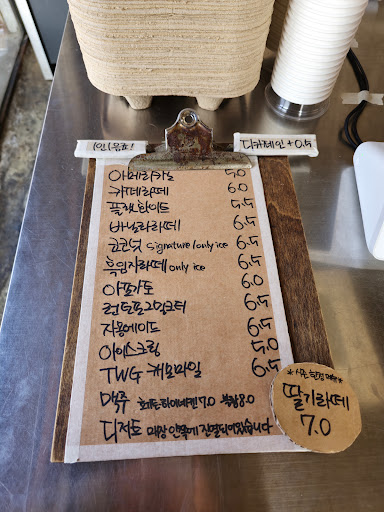 1인 1음료!
디카페인 +0.5
아메리카노 5.0
카페라떼 6.0
플랫화이트 5.5
바닐라라떼 6.5
코코넛 signature/only ice 6.5
흑임자라떼 only ice 6.5
아포가토 6.0
런던포그밀크티 6.5
자몽에이드 6.5
아이스크림 5.0
TWG 캐모마일 6.5
맥주 7.0 8.0
디저트 매장 안쪽에 진열되어있습니다
*시즌 한정 메뉴*
딸기라떼
7.0